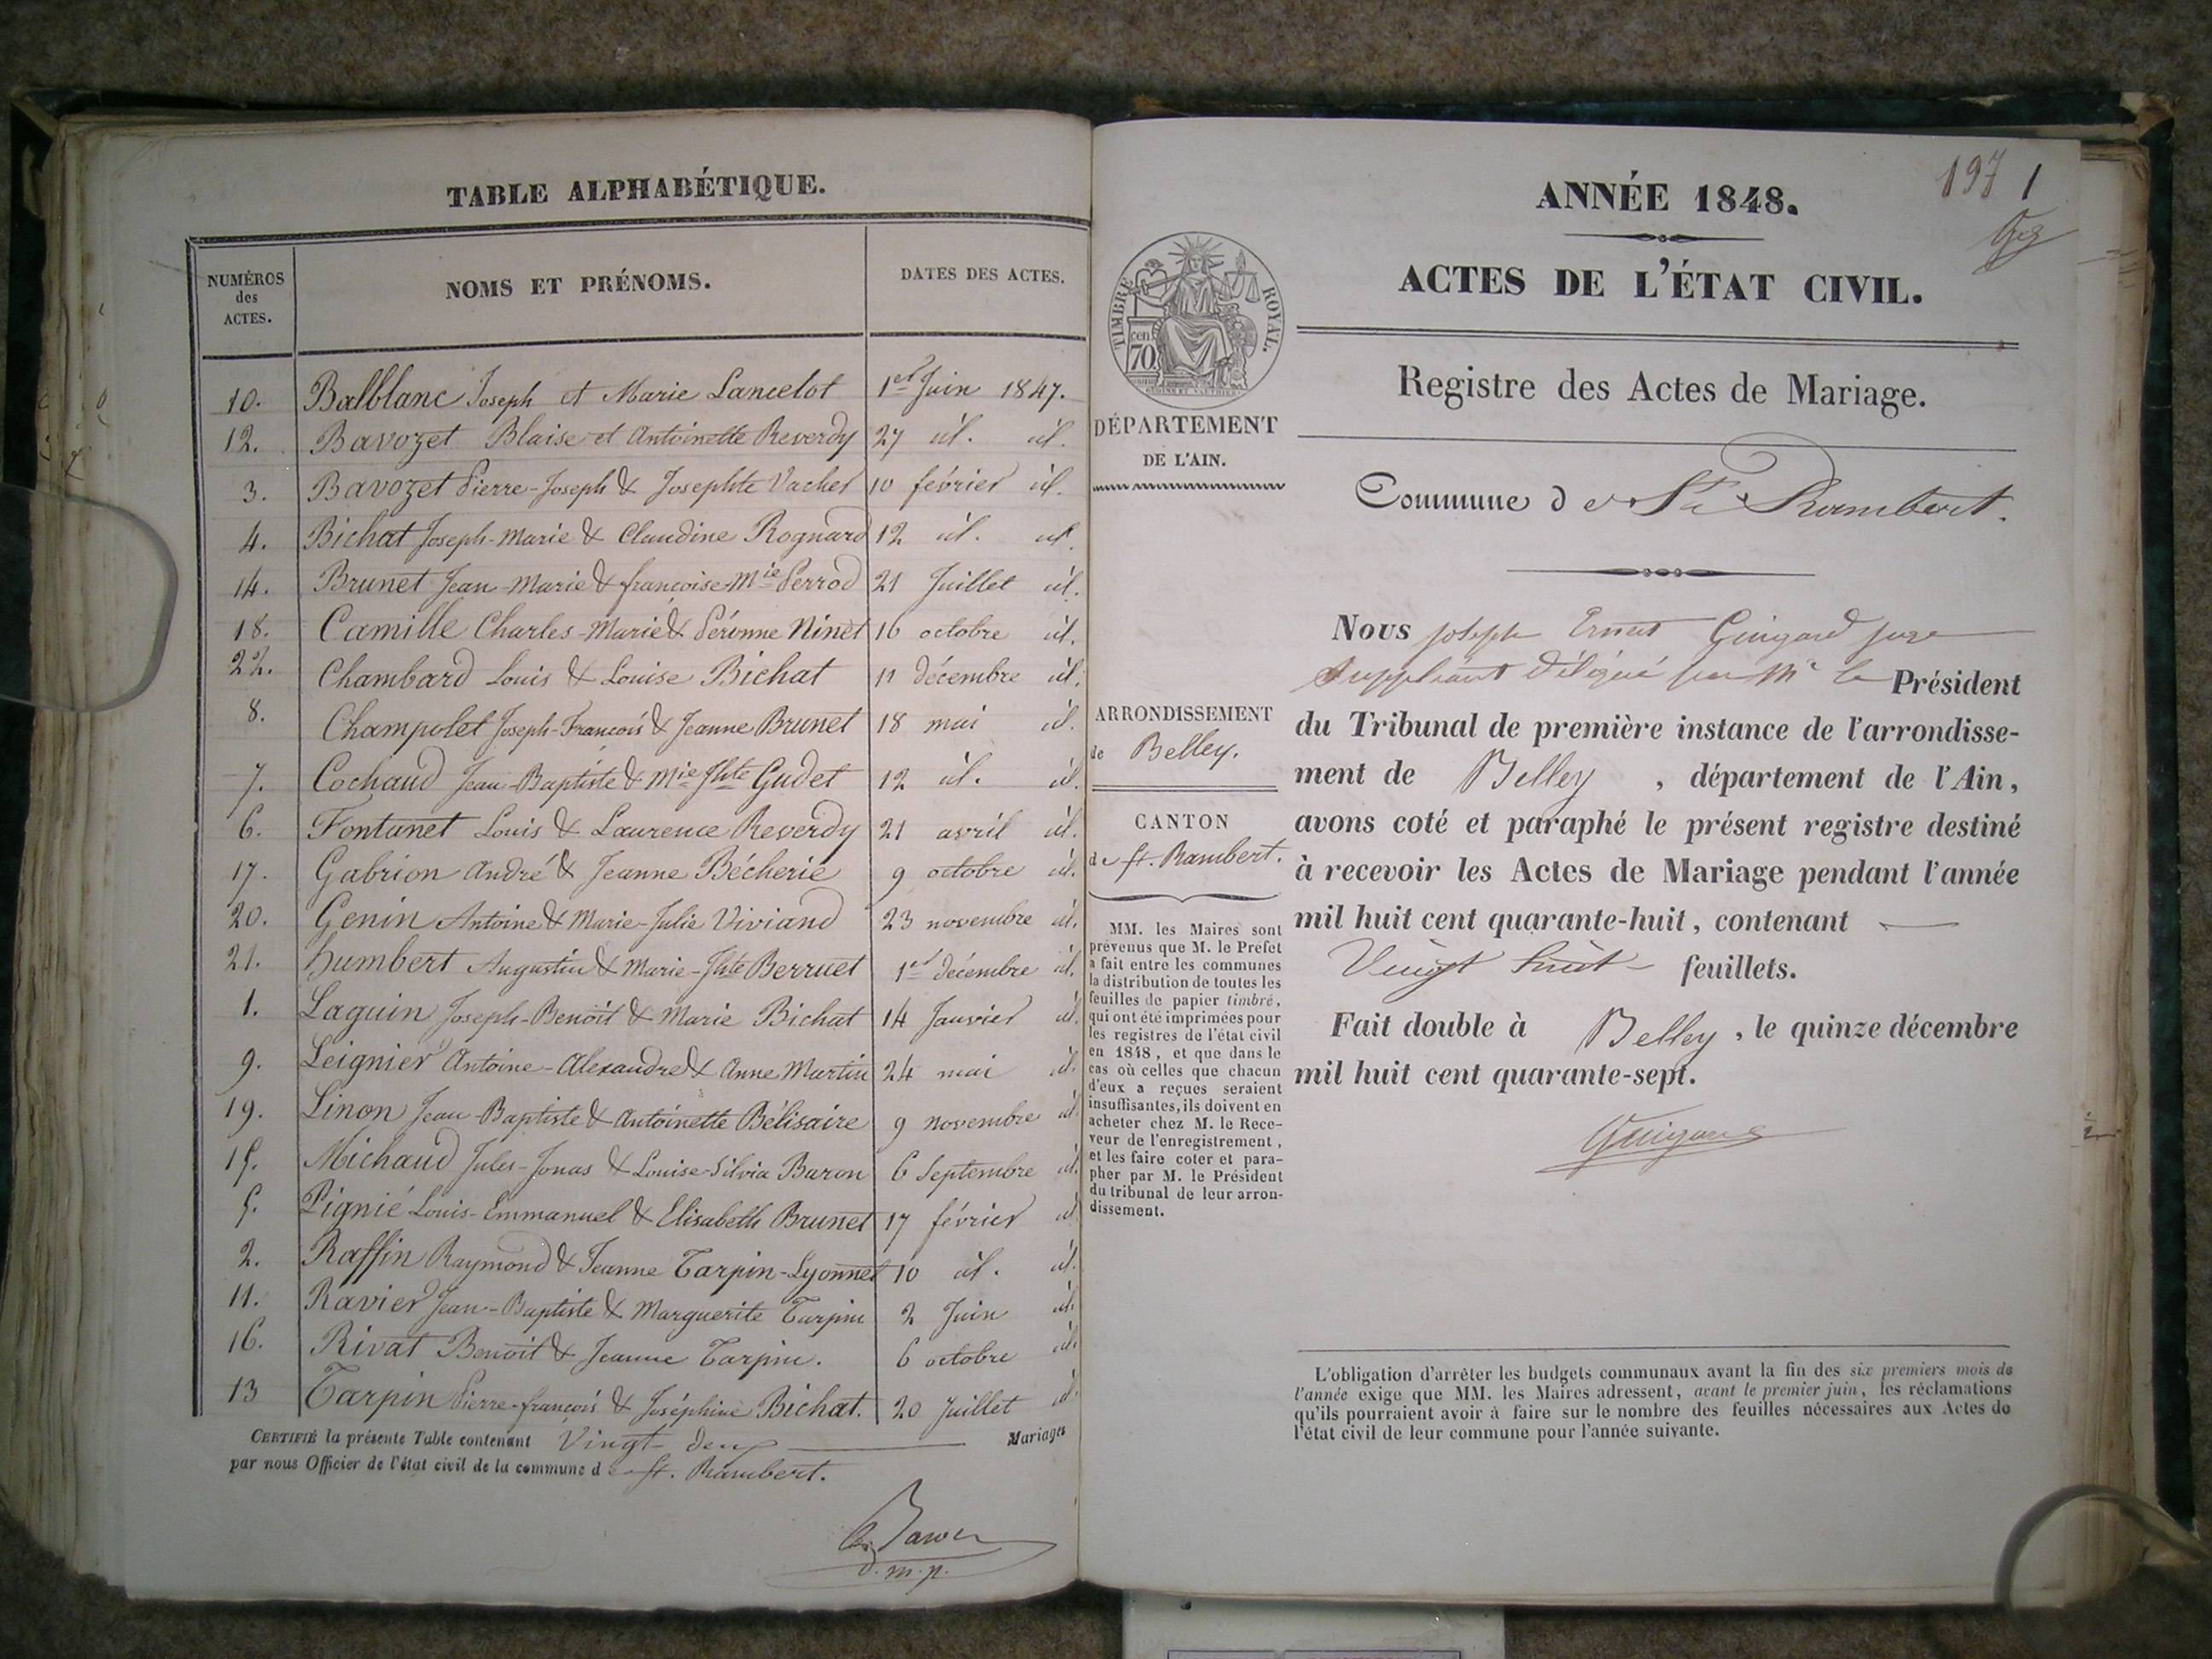 TABLE ALPHABÉTIQUE.
NUMÉROS des ACTES. NOMS ET PRÉNOMS. DATES DES ACTES.
10. Balblanc Joseph et Marie Lancelot 1er Juin 1847.
12. Bavozet Blaise et Antoinette Reverdy 27 id. id.
3. Bavozet Pierre-Joseph & Josephte Vacher 10 février id.
4. Bichat Joseph-Marie & Claudine Rognard 12 id. id.
14. Brunet Jean-Marie & françoise-Mie Perrod 21 Juillet id.
18. Camille Charles-Marie & Péronne Ninet 16 octobre id.
22. Chambard Louis & Louise Bichat 11 décembre id.
8. Champolet Joseph-François & Jeanne Brunet 18 mai id.
7. Cochaud Jean-Baptiste & Mie Jhte Gudet 12 id. id.
6. Fontanet Louis & Laurence Reverdy 21 avril id.
17. Gabrion André & Jeanne Bécherie 9 octobre id.
20. Genin Antoine & Marie-Julie Viviand 23 novembre id.
21. humbert Augustin & Marie-Jhte Berruet 1er décembre id.
1. Laguin Joseph-Benoit & Marie Bichat 14 Janvier id.
9. Leignier Antoine-Alexandre & Anne Martin 24 mai id.
19. Linon Jean-Baptiste & Antoinette Bélisaire 9 novembre id.
15. Michaud Jules-Jonas & Louise-Silvia Baron 6 Septembre id.
5. Pignié Louis-Emmanuel & Elisabeth Brunet 17 février id.
2. Raffin Raymond & Jeanne Tarpin-Lyonnet 10 id. id.
11. Ravier Jean-Baptiste & Marguerite Tarpin 2 Juin id.
16. Rivat Benoit & Jeanne Tarpin. 6 octobre id.
13 Tarpin Pierre-françois & Joséphine Bichat. 20 Juillet id.
CERTIFIÉ la présente Table contenant Vingt-deux Mariages
par nous Officier de l'état civil de la commune de St. Rambert.
d.m.p.
197 1
ANNÉE 1848.
ACTES DE L'ÉTAT CIVIL.
TIMBRE ROYAL.
cen 70
DÉPARTEMENT
DE L'AIN.
ARRONDISSEMENT
de Belley.
CANTON
de St. Rambert.
MM. les Maires sont
prévenus que M. le Préfet
a fait entre les communes
la distribution de toutes les
feuilles de papier timbré,
qui ont été imprimées pour
les registres de l'état civil
en 1848, et que dans le
cas où celles que chacun
d'eux a reçues seraient
insuffisantes, ils doivent en
acheter chez M. le Rece-
veur de l'enregistrement,
et les faire coter et para-
pher par M. le Président
du tribunal de leur arron-
dissement.
Registre des Actes de Mariage.
Commune de St Rambert.
Nous Joseph Ernest Guigard juge
Suppléant délégué par Mr le Président
du Tribunal de première instance de l'arrondisse-
ment de Belley, département de l'Ain,
avons coté et paraphé le présent registre destiné
à recevoir les Actes de Mariage pendant l'année
mil huit cent quarante-huit, contenant
Vingt huit feuillets.
Fait double à Belley, le quinze décembre
mil huit cent quarante-sept.
Guigard
L'obligation d'arrêter les budgets communaux avant la fin des six premiers mois de
l'année exige que MM. les Maires adressent, avant le premier juin, les réclamations
qu'ils pourraient avoir à faire sur le nombre des feuilles nécessaires aux Actes de
l'état civil de leur commune pour l'année suivante.